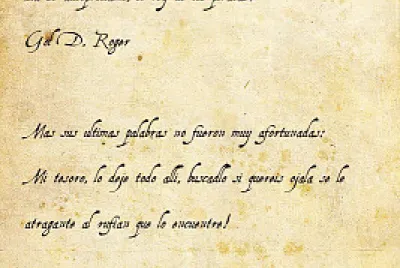 Gol D. Roger
Mas sus ultimas palabras no fueron muy afortunadas:
Mi tesoro, lo deje todo alli, buscadlo si quereis ojala se le
atragante al rufian que lo encuentre!